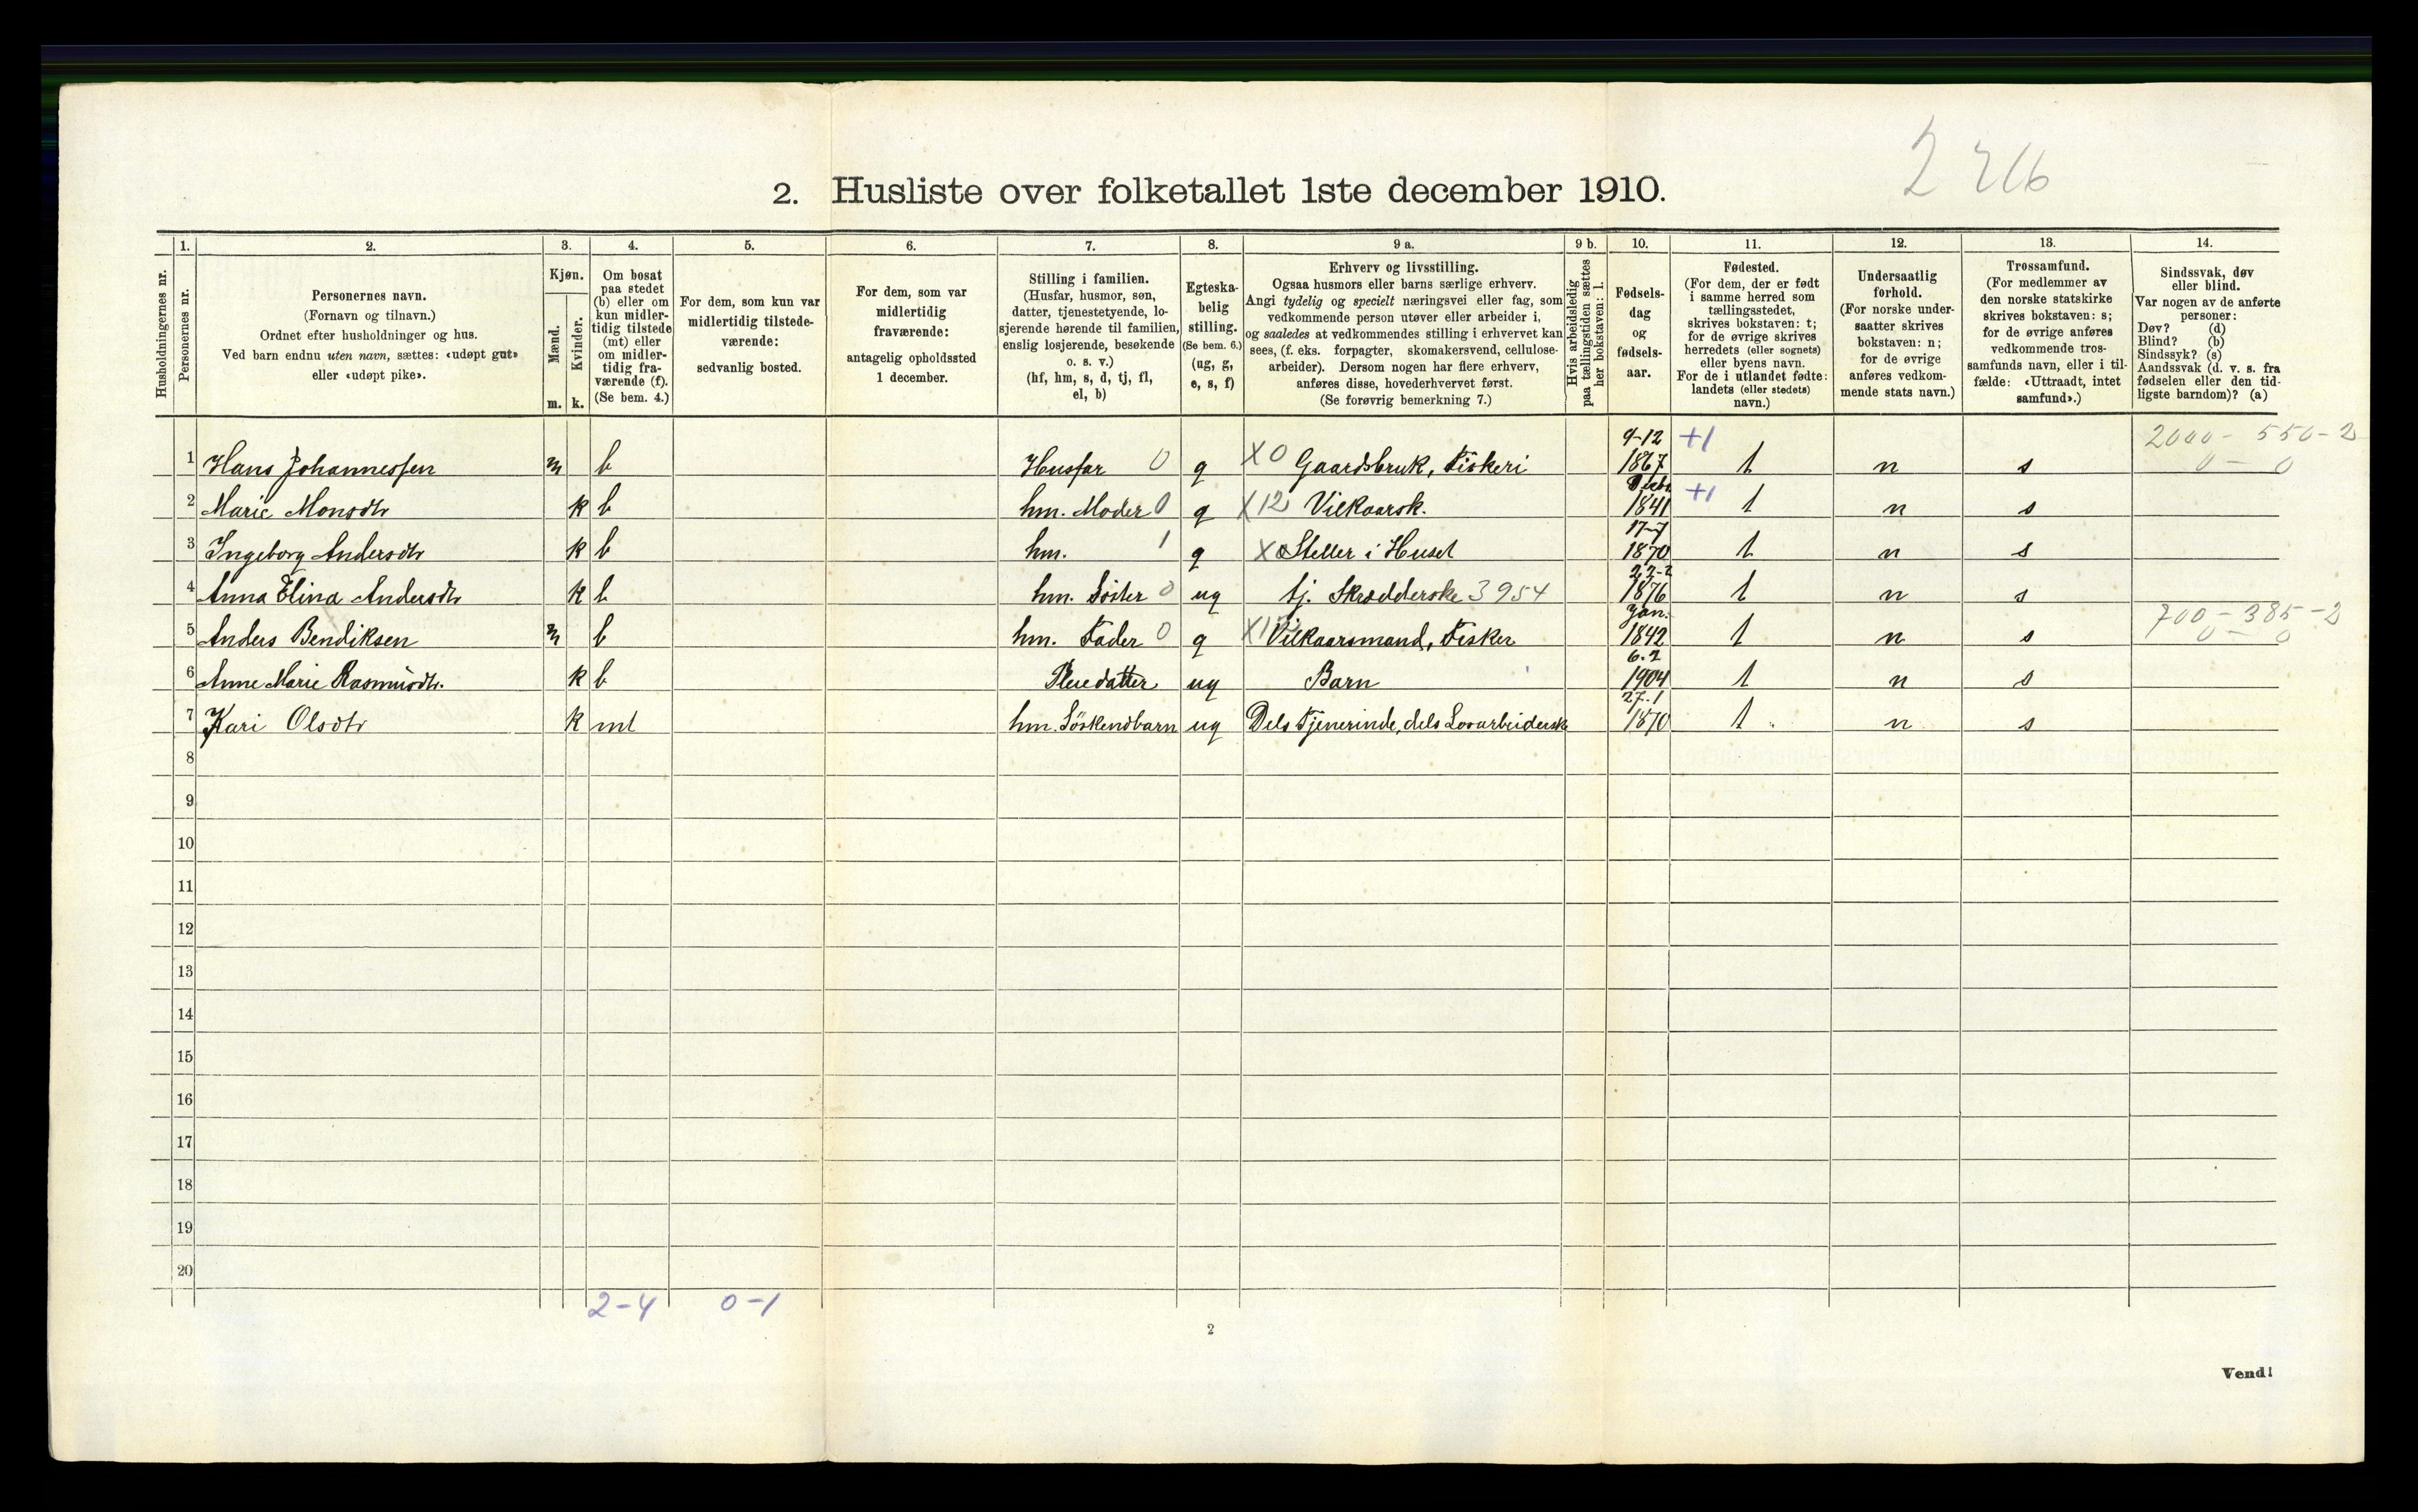 2 2
2. Husliste over folketallet 1ste december 1910.
Husholdningernes nr.
1. 2. 3. 4. 5. 6. 7. 8. 9 a. 9 b. 10. 11. 12. 13. 14.
Personernes nr.
Personernes navn.
(Fornavn og tilnavn.)
Ordnet efter husholdninger og hus.
Ved barn endnu uten navn, sættes: «udøpt gut»
eller «udøpt pike».
Kjøn.
Mænd.
Kvinder.
m. k.
Om bosat
paa stedet
(b) eller om
kun midler-
tidig tilstede
(mt) eller
om midler-
tidig fra-
værende (f).
(Se bem. 4.)
For dem, som kun var
midlertidig tilstede-
værende:
sedvanlig bosted.
For dem, som var
midlertidig
fraværende:
antagelig opholdssted
1 december.
Stilling i familien.
(Husfar, husmor, søn,
datter, tjenestetyende, lo-
sjerende hørende til familien,
enslig losjerende, besøkende
o. s. v.)
(hf, hm, s, d, tj, fl,
el, b)
Egteska-
belig
stilling.
(Se bem. 6.)
(ug, g,
e, s, f)
Erhverv og livsstilling.
Ogsaa husmors eller barns særlige erhverv.
Angi tydelig og specielt næringsvei eller fag, som
vedkommende person utøver eller arbeider i,
og saaledes at vedkommendes stilling i erhvervet kan
sees, (f. eks. forpagter, skomakersvend, cellulose-
arbeider). Dersom nogen har flere erhverv,
anføres disse, hovederhvervet først.
(Se forøvrig bemerkning 7.)
Hvis arbeidsledig
paa tællingstiden sættes
her bokstaven: l.
Fødsels-
dag
og
fødsels-
aar.
Fødested.
(For dem, der er født
i samme herred som
tællingsstedet,
skrives bokstaven: t;
for de øvrige skrives
herredets (eller sognets)
eller byens navn.
For de i utlandet fødte:
landets (eller stedets)
navn.)
Undersaatlig
forhold.
(For norske under-
saatter skrives
bokstaven: n;
for de øvrige
anføres vedkom-
mende stats navn.)
Trossamfund.
(For medlemmer av
den norske statskirke
skrives bokstaven: s;
for de øvrige anføres
vedkommende tros-
samfunds navn, eller i til-
fælde: «Uttraadt, intet
samfund».)
Sindssvak, døv
eller blind.
Var nogen av de anførte
personer:
Døv? (d)
Blind? (b)
Sindssyk? (s)
Aandssvak (d. v. s. fra
fødselen eller den tid-
ligste barndom)? (a)
9-12 +1 2000 - 550 - 2
1 Hans Johannessen m b Husfar 0 g X0 Gaardsbruk, Fiskeri 1867 t n s 0 - 0
+1
2 Marie Monsdtr k b hm. Moder 0 g X12 Vilkaarsk. 1841 t n s
17-7
3 Ingeborg Andersdtr k b hm. 1 g X0 Steller i Huset 1870 t n s
22-2
4 Anna Elina Andersdtr k b hm. Søster 0 ug tj. Skrædderske 3954 1876 t n s
Jan. 700 - 385 - 2
5 Anders Bendiksen m b hm. Fader 0 g Vilkaarsmand, Fisker 1842 t n s 0 - 0
6.2
6 Anne Marie Rasmusdtr. k b Pleiedatter ug Barn 1904 t n s
27.1
7 Kari Olsdtr k mt hm. Søskendbarn ug Dels Tjenerinde, dels Løsarbeiderske 1870 t n s
8
9
10
11
12
13
14
15
16
17
18
19
20
2-4 0-1
2
Vend!